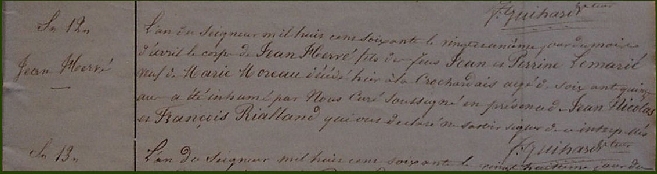 J. Guihard rteur
Sn 12n
L'an du Seigneur mil huit cent soixante le vingt jour du mois
d'avril le corps de Jean Hervé fils de feus Jean et Perrine Lemaril
Jean Hervé
veuf de Marie Moreau décédé hier à la Crochardais agé de soixante quinze
ans a été inhumé par Nous Curé Soussigné en présence de Jean Nicolas
et François Rialland qui ont déclaré ne savoir signer de ce interpellés
J. Guihard rteur
Sn 13n
L'an du Seigneur mil huit cent soixante le vingt huitième jour du